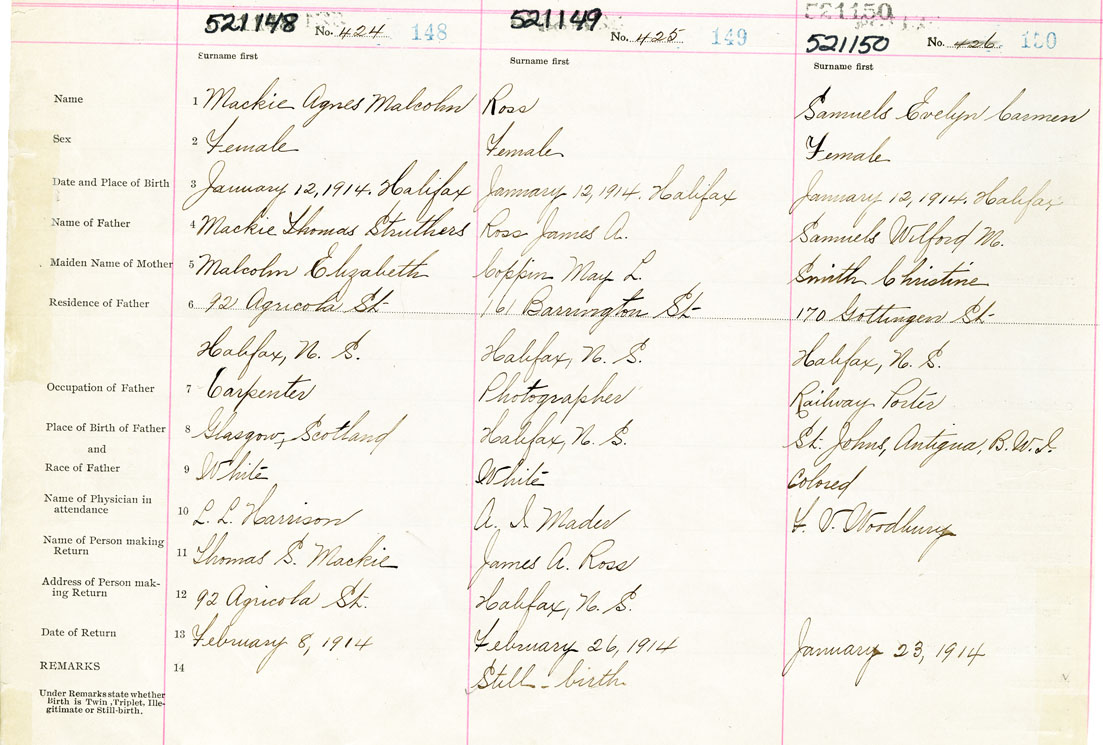 521148 No. 424 148
521149 No. 425 149
521150
521150 No. 426 150
Surname first Surname first Surname first
Name 1 Mackie Agnes Malcolm Ross Samuels Evelyn Carmen
Sex 2 Female Female Female
Date and Place of Birth 3 January 12, 1914. Halifax January 12, 1914. Halifax January 12, 1914. Halifax
Name of Father 4 Mackie Thomas Struthers Ross James A. Samuels Wilford M.
Maiden Name of Mother 5 Malcolm Elizabeth Coppin May L. Smith Christine
Residence of Father 6 92 Agricola St. 161 Barrington St. 170 Gottingen St.
Halifax, N. S. Halifax, N. S. Halifax, N. S.
Occupation of Father 7 Carpenter Photographer Railway Porter
Place of Birth of Father 8 Glasgow, Scotland Halifax, N. S. St. Johns, Antigua, B. W. I.
and
Race of Father 9 White White Colored
Name of Physician in
attendance 10 L. L. Harrison A. I. Mader F. V. Woodbury
Name of Person making
Return 11 Thomas S. Mackie James A. Ross
Address of Person mak-
ing Return 12 92 Agricola St. Halifax, N. S.
Date of Return 13 February 8, 1914 February 26, 1914 January 23, 1914
REMARKS 14 Still-birth
Under Remarks state whether
Birth is Twin, Triplet, Ille-
gitimate or Still-birth.